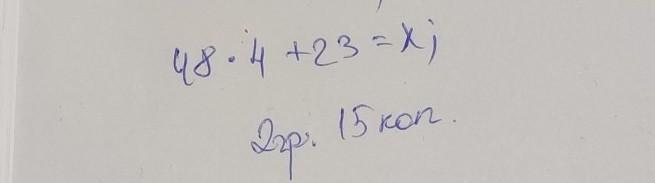 48 · 4 + 23 = x;
2гр. 15 коп.